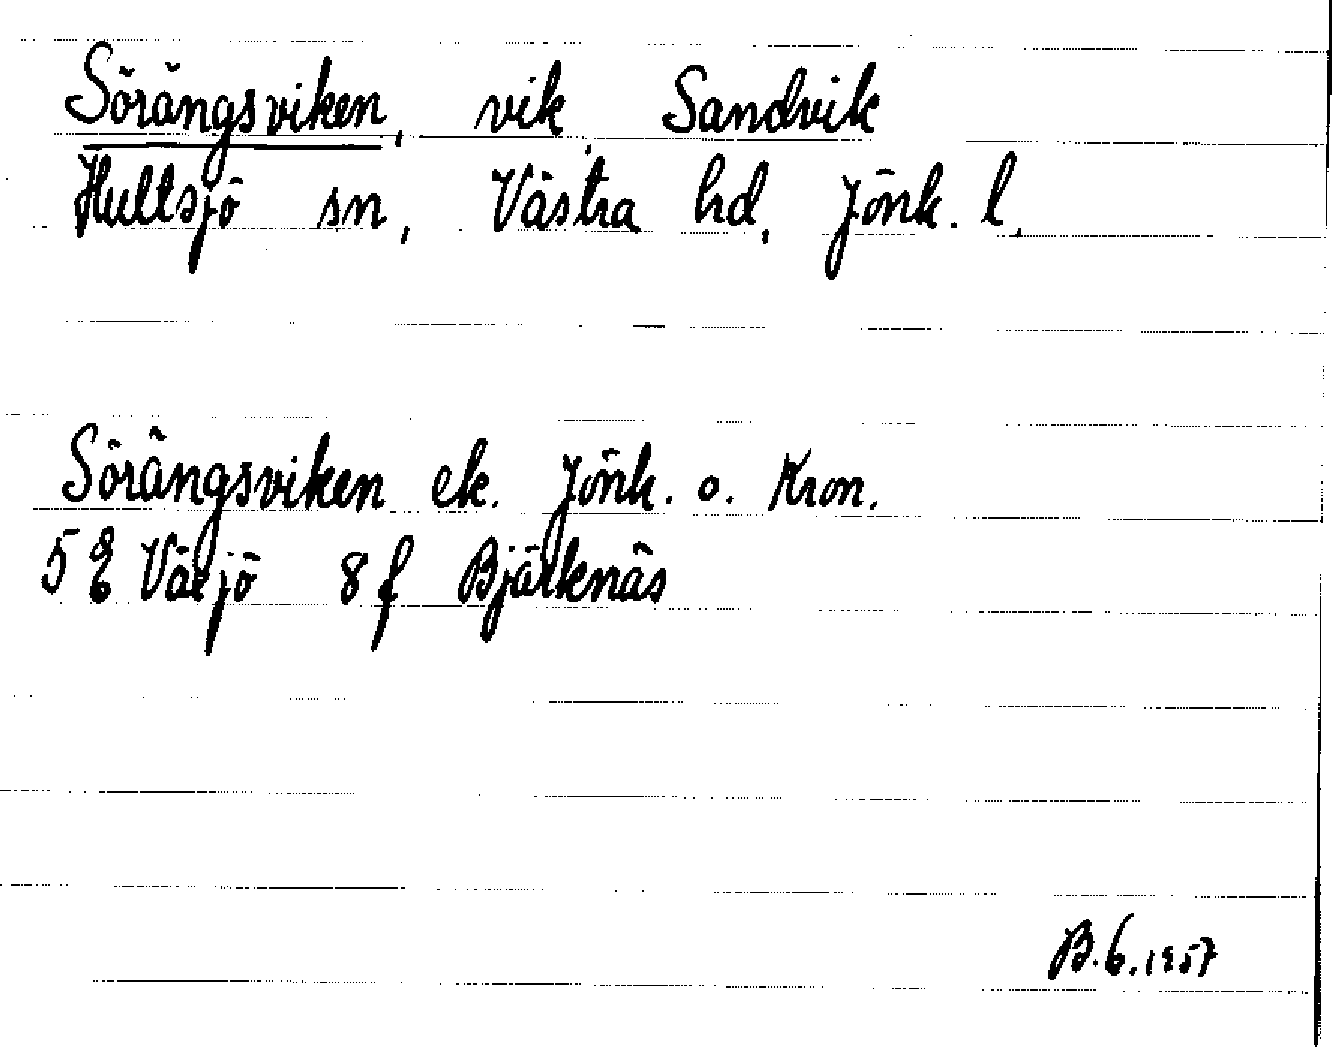 Sörängsviken, vik Sandvik
Hultsjö sn, Västra hd, Jönk. l.
Sörängsviken ek. Jönk. o. Kron.
5 E Växjö 8 f Bjärknäs
B.G. 1957